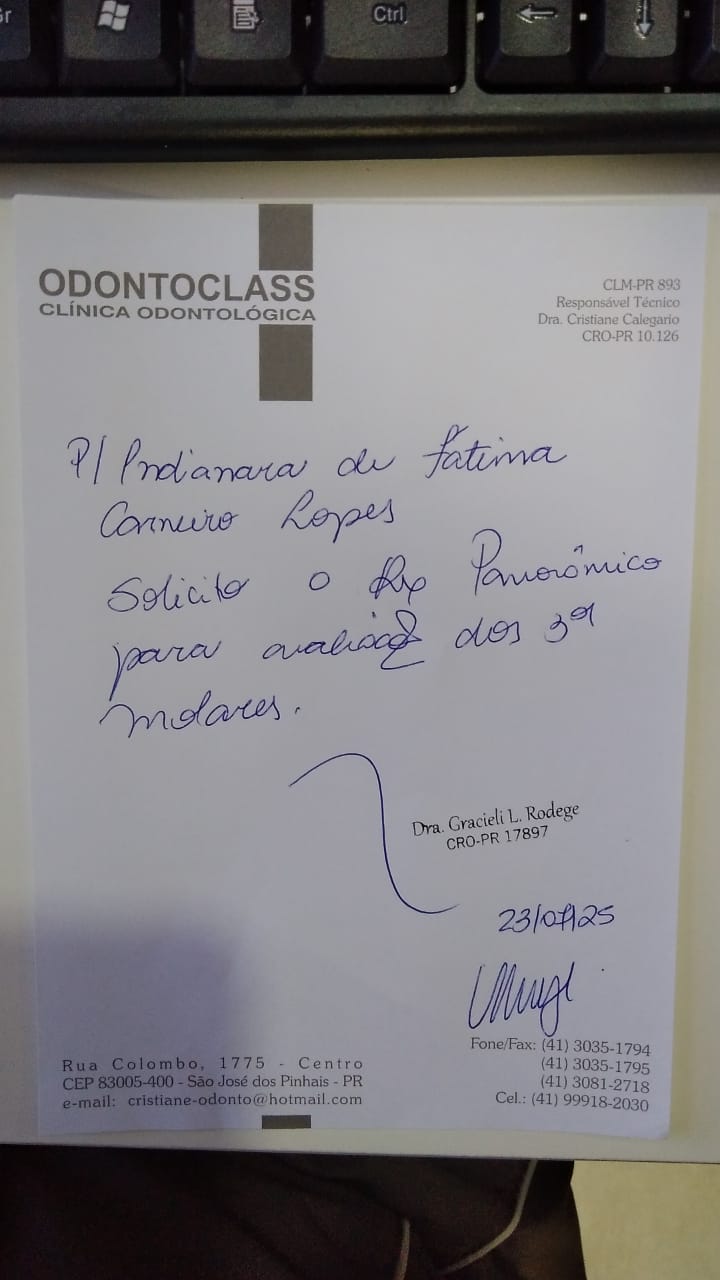 Gr
Ctrl
ODONTOCLASS
CLÍNICA ODONTOLÓGICA
CLM-PR 893
Responsável Técnico
Dra. Cristiane Calegario
CRO-PR 10.126
P/ Indianara de Fátima
Carneiro Lopes
Solicito o Rx Panorâmico
para avaliação dos 3os
molares.
Dra. Gracieli L. Rodege
CRO-PR 17897
23/07/25
Rua Colombo, 1775 - Centro
CEP 83005-400 - São José dos Pinhais - PR
e-mail: cristiane-odonto@hotmail.com
Fone/Fax: (41) 3035-1794
(41) 3035-1795
(41) 3081-2718
Cel.: (41) 99918-2030